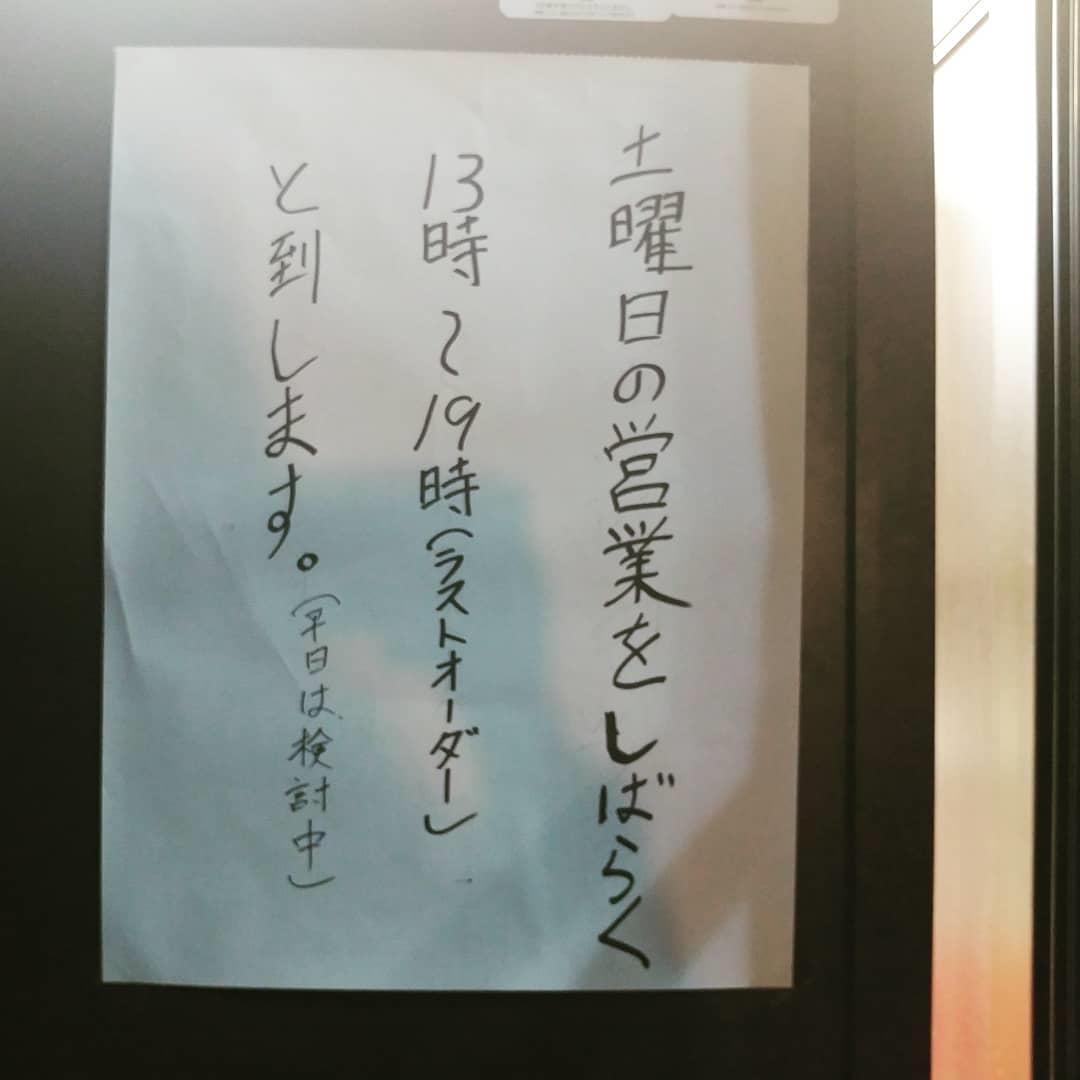 土曜日の営業をしばらく
13時〜19時(ラストオーダー)
と到します。(早日は検討中)